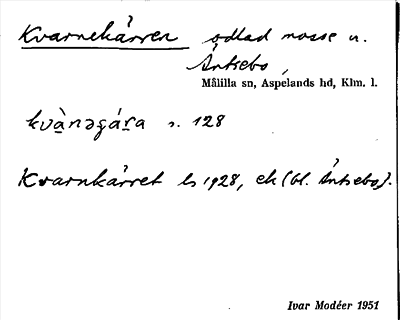 Kvarnekärren odlad mosse u.
Äntsebo,
Målilla sn, Aspelands hd, Klm. l.
kvànəgára s. 128
Kvarnkärret ls 1928, ek (bl. Äntsebo).
Ivar Modéer 1951